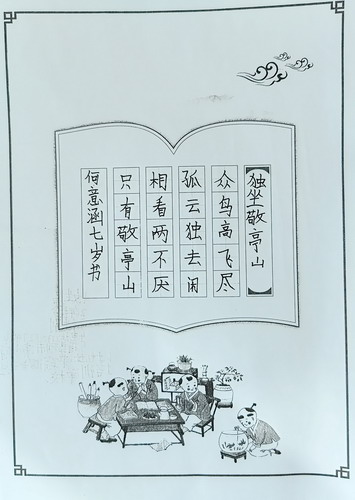 独坐敬亭山
众鸟高飞尽
孤云独去闲
相看两不厌
只有敬亭山
何意涵七岁书